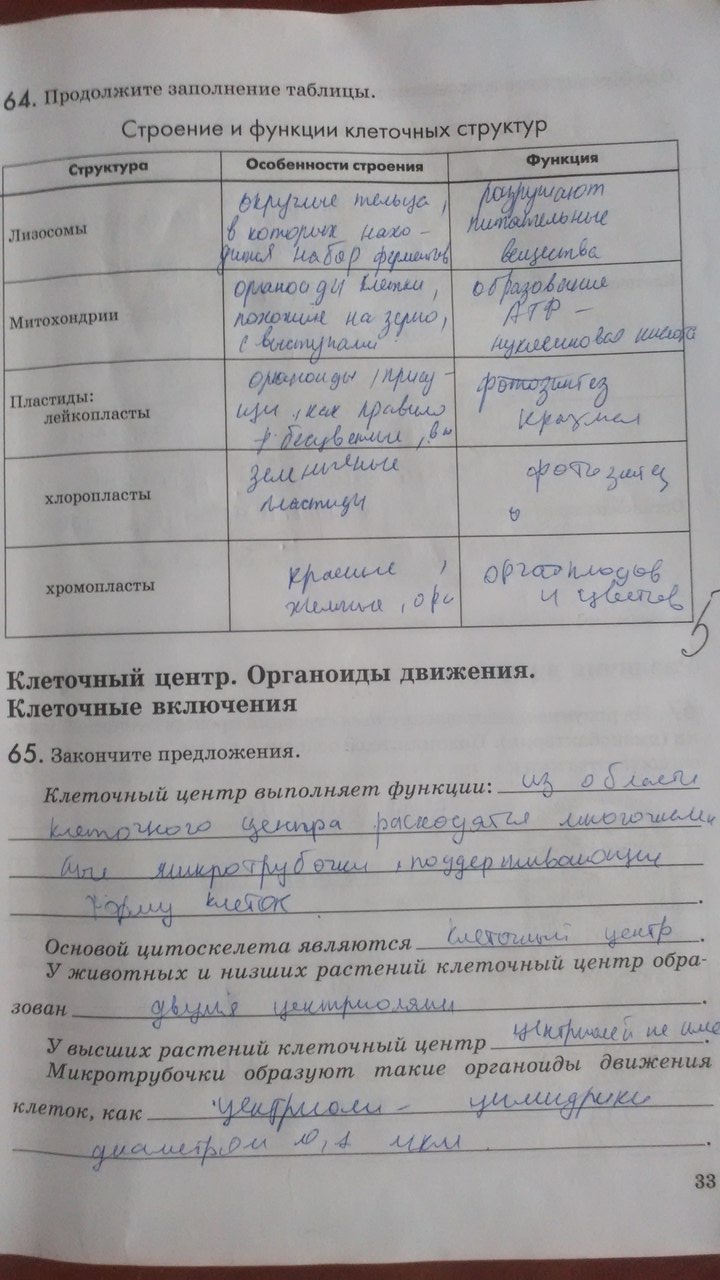 64. Продолжите заполнение таблицы.
Строение и функции клеточных структур
Структура
Особенности строения
Функция
Лизосомы
округлые тельца,
в которых нахо-
дится набор ферментов
разрушают
питательные
вещества
Митохондрии
органоиды клетки,
похожие на зерно,
с выступами
образование
АТФ –
нуклеиновая кислота
Пластиды:
лейкопласты
органоиды, прису-
щи, как правило
бесцветные,
фотозинтез
крахмал
хлоропласты
пластиды
фотозинтез
хромопласты
красные,
желтые, ора
плодов
и цветов
5
Клеточный центр. Органоиды движения.
Клеточные включения
65. Закончите предложения.
Клеточный центр выполняет функции: из области
клеточного центра расходятся многочислен
ные микротрубочки, поддерживающие
форму клеток.
Основой цитоскелета являются клеточный центр.
У животных и низших растений клеточный центр обра-
зован двумя центриолями.
У высших растений клеточный центр центриолей не име.
Микротрубочки образуют такие органоиды движения
клеток, как центриоли – цилиндрики
диаметром 0,1 мкм.
33